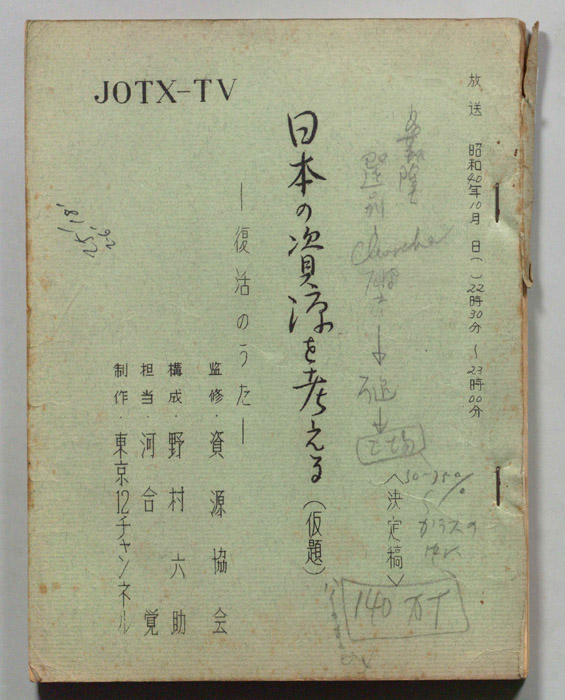 JOTX-TV
放送 昭和40年10月 日( )22時30分~23時00分
日本の資源を考える(仮題)
<決定稿>
―復活のうた―
監修・資源協会
構成・野村六助
担当 河合覚
制作・東京12チャンネル
140万T
工場
ガラスの